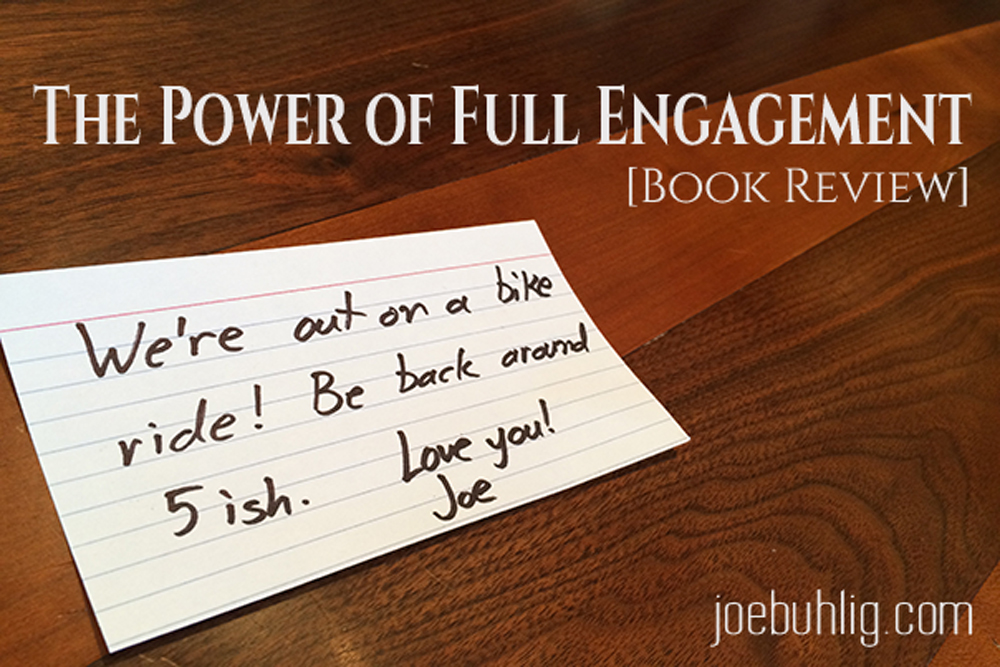 The Power of Full Engagement
[Book Review]
We're out on a bike
ride! Be back around
5 ish. Love you!
Joe
joebuhlig.com